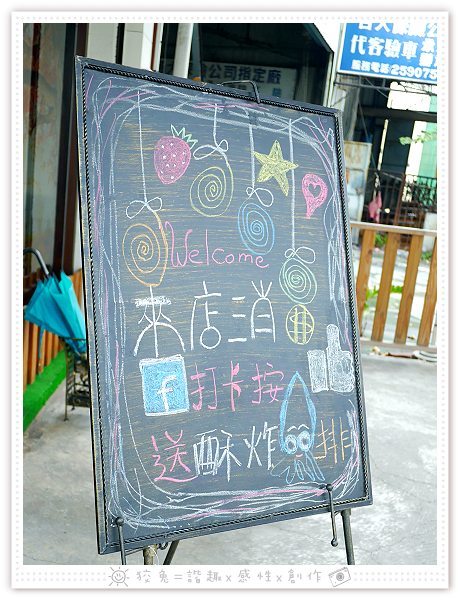 代客驗車
服務電話:259075
公司指定廠
Welcome
來店消$
f 打卡按
送酥炸 排
狡兔=諧趣x感性x創作